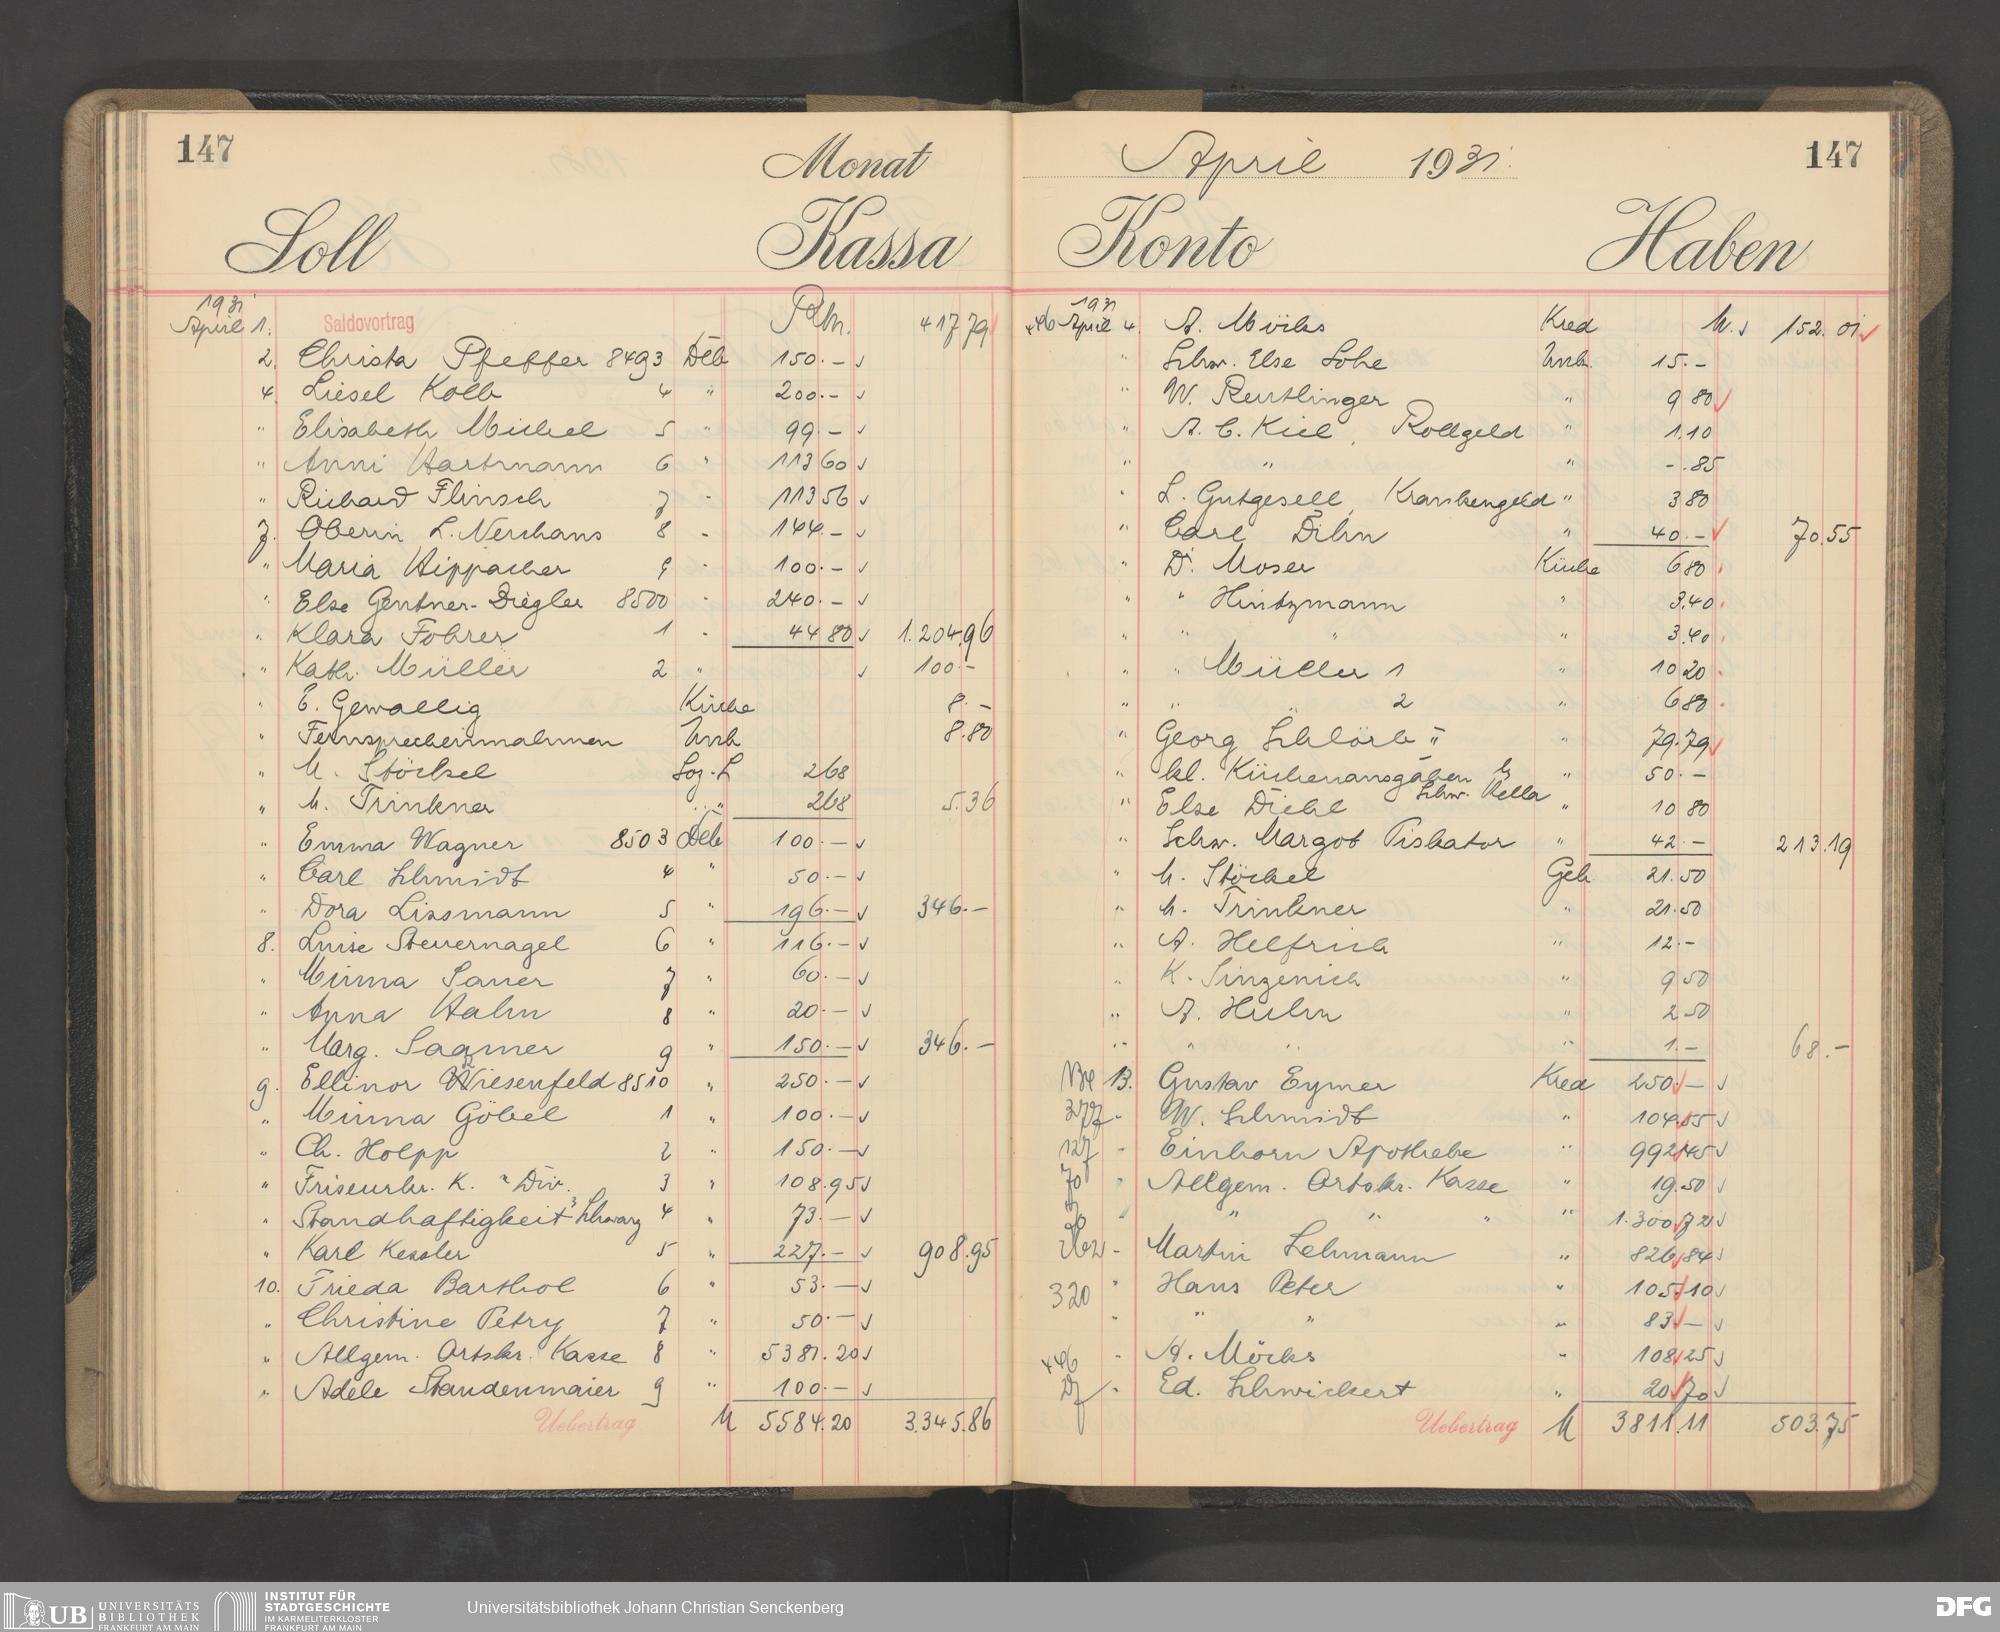 147
Monat
Soll Kassa
1931 Rbm.
April 1. Saldovortrag 417 79
2. Christa Pfeffer 8493 Deb 150.—
4. Liesel Kolb 4 " 200.—
" Elisabeth Michel 5 " 99.—
" Anni Hartmann 6 " 113 60
" Richard Flinsch 7 " 113 56
7. Oberin L. Neuhaus 8 " 144.—
" Maria Hippacher 9 " 100.—
" Else Gentner-Diegler 8500 " 240.—
" Klara Fohrer 1 " 44 80 1.204.96
" Kath. Müller 2 " 100.—
" E. Gewallig Küche 8.—
" Fernsprecheinnahmen Unk 8.80
" M. Stöckel Soz.L 2 68
" M. Trinkner " 2 68 5.36
" Emma Wagner 8503 Deb 100.—
" Carl Schmidt 4 " 50.—
" Dora Lissmann 5 " 196.— 346.—
8. Luise Steuernagel 6 " 116.—
" Minna Sauer 7 " 60.—
" Anna Hahn 8 " 20.—
" Marg. Sagmer 9 " 150.— 346.—
9. Ellinor Wiesenfeld 8510 " 250.—
" Minna Göbel 1 " 100.—
" Ch. Holpp 2 " 150.—
" Friseurkr. K. " Div. 3 " 108.95
" Standhaftigkeit Schwarz 4 " 73.—
" Karl Kessler 5 " 227.— 908.95
10. Frieda Barthol 6 " 53.—
" Christine Petry 7 " 50.—
" Allgem. Ortskr. Kasse 8 " 5381.20
" Adele Staudenmaier 9 " 100.—
Uebertrag M 5584.20 3.345.86
April 1931. 147
Konto Haben
1931
446 April 4. A. Möcks Kred M. 152.01
" Schw. Else Lohe Unk. 15.—
" W. Reutlinger " 9 80
" A. C. Kiel, Rollgeld " 1.10
" " " -.85
" L. Gutgesell, Krankengeld " 3 80
" Carl Dihn " 40.— 70.55
" Dr. Moser Küche 6 80
" " Hintzmann " 3.40
" " " " 3.40
" " Müller 1 " 10 20
" " " 2 " 6 80
" Georg Schlörb " " 79.79
" kl. Küchenausgaben " 50.—
Schw. Hella
" Else Diehl " 10 80
" Schw. Margot Piskator " 42.— 213.19
" M. Stöckel Geh 21.50
" M. Trinkner " 21.50
" A. Helfrich " 12.—
" K. Singenich " 9 50
" A. Huhn " 2 50
" " " " 1.— 68.—
13. Gustav Eymer Kred 250.—
377 " W. Schmidt " 104.55
127 " Einhorn Apotheke " 992.45
70 " Allgem. Ortskr. Kasse " 19.50
" " " " " 1.300.72
262 " Martin Lehmann " 826.84
320 " Hans Peter " 105.10
" " " " 83.—
446 " A. Möcks " 108.25
27 " Ed. Schwickert " 20.70
Uebertrag M 3811.11 503.75
UB UNIVERSITÄTS
BIBLIOTHEK
FRANKFURT AM MAIN
INSTITUT FÜR
STADTGESCHICHTE
IM KARMELITERKLOSTER
FRANKFURT AM MAIN
Universitätsbibliothek Johann Christian Senckenberg
DFG